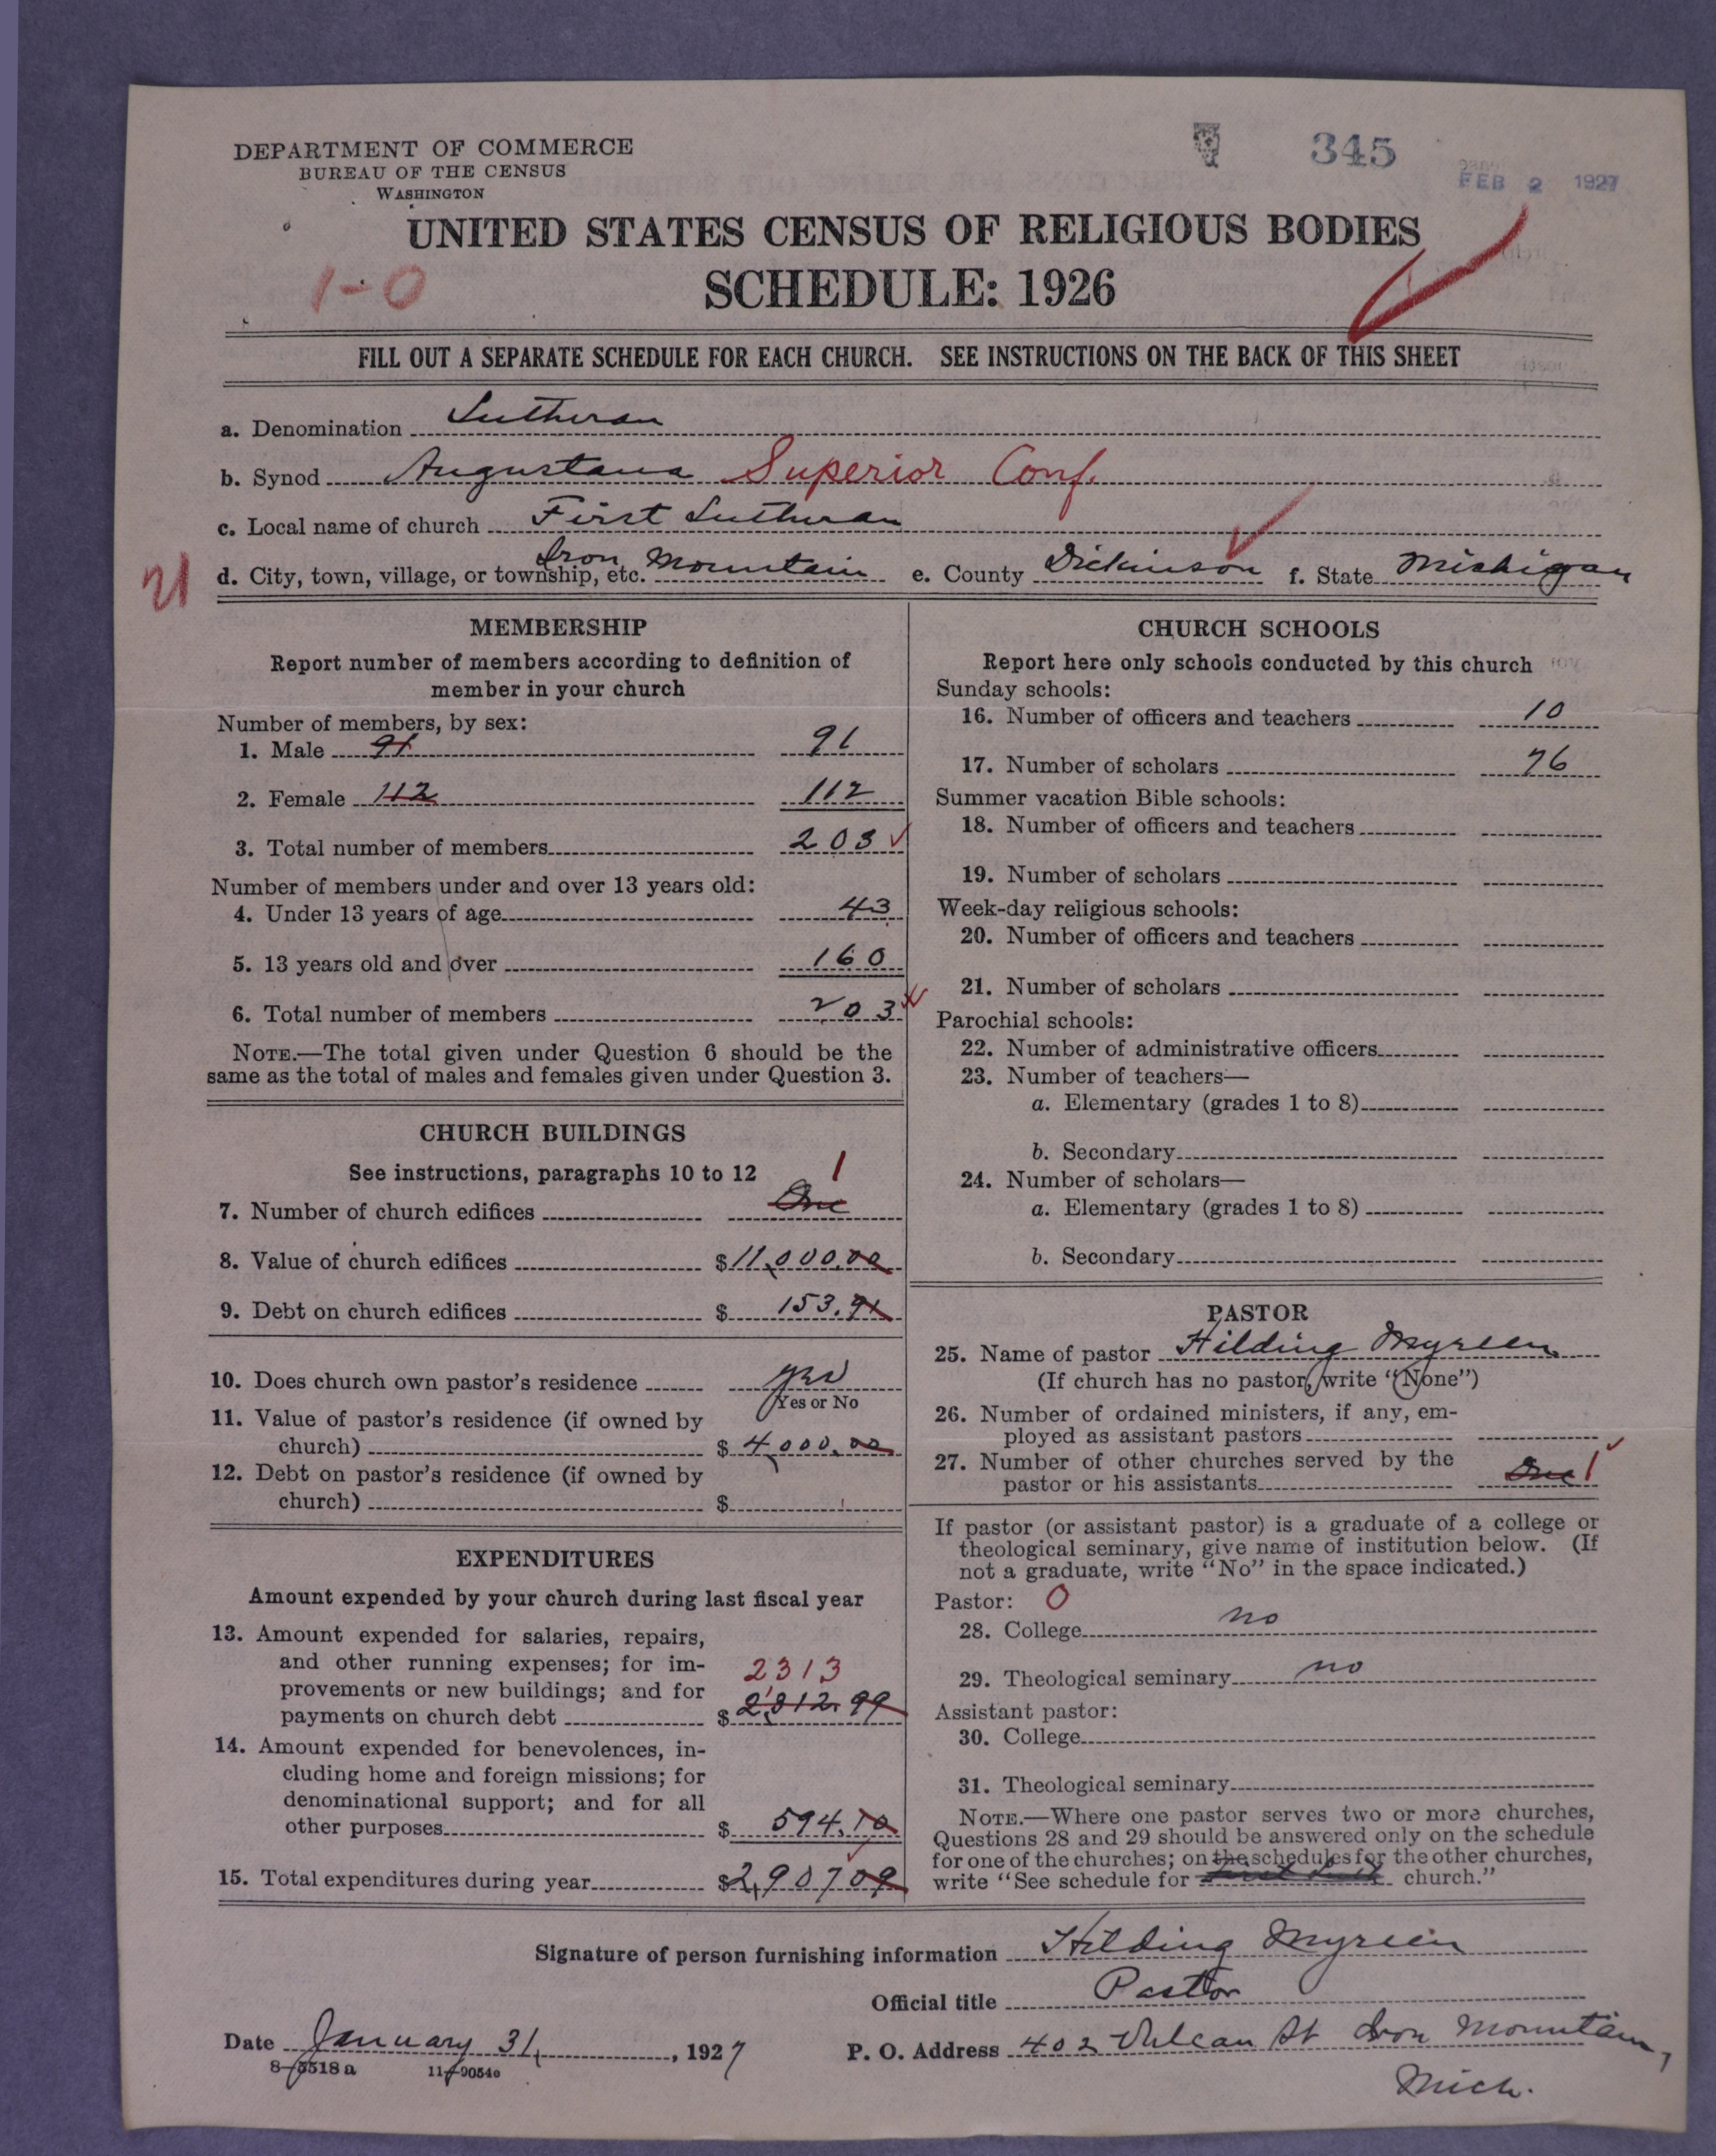 DEPARTMENT OF COMMERCE
BUREAU OF THE CENSUS
WASHINGTON
345
FEB 2 1927
UNITED STATES CENSUS OF RELIGIOUS BODIES
1-0
SCHEDULE: 1926
FILL OUT A SEPARATE SCHEDULE FOR EACH CHURCH. SEE INSTRUCTIONS ON THE BACK OF THIS SHEET
a. Denomination Lutheran
b. Synod Augustana Superior Conf.
c. Local name of church First Lutheran
21 d. City, town, village, or township, etc. Iron Mountain e. County Dickinson f. State Michigan
MEMBERSHIP
Report number of members according to definition of
member in your church
Number of members, by sex:
1. Male 91 91
2. Female 112 112
3. Total number of members 203
Number of members under and over 13 years old:
4. Under 13 years of age 43
5. 13 years old and over 160
6. Total number of members 203
NOTE.—The total given under Question 6 should be the
same as the total of males and females given under Question 3.
CHURCH BUILDINGS
See instructions, paragraphs 10 to 12 1
7. Number of church edifices One
8. Value of church edifices $11,000.00
9. Debt on church edifices $ 153.91
10. Does church own pastor's residence yes
Yes or No
11. Value of pastor's residence (if owned by
church) $ 4,000.00
12. Debt on pastor's residence (if owned by
church) $
EXPENDITURES
Amount expended by your church during last fiscal year
13. Amount expended for salaries, repairs,
and other running expenses; for im-
2313
provements or new buildings; and for
payments on church debt $ 2,312.99
14. Amount expended for benevolences, in-
cluding home and foreign missions; for
denominational support; and for all
other purposes $ 594.10
15. Total expenditures during year $2,90709
CHURCH SCHOOLS
Report here only schools conducted by this church
Sunday schools:
16. Number of officers and teachers 10
17. Number of scholars 76
Summer vacation Bible schools:
18. Number of officers and teachers
19. Number of scholars
Week-day religious schools:
20. Number of officers and teachers
21. Number of scholars
Parochial schools:
22. Number of administrative officers
23. Number of teachers—
a. Elementary (grades 1 to 8)
b. Secondary
24. Number of scholars—
a. Elementary (grades 1 to 8)
b. Secondary
PASTOR
25. Name of pastor Hilding Myreen
(If church has no pastor, write "None")
26. Number of ordained ministers, if any, em-
ployed as assistant pastors
27. Number of other churches served by the
pastor or his assistants One 1
If pastor (or assistant pastor) is a graduate of a college or
theological seminary, give name of institution below. (If
not a graduate, write "No" in the space indicated.)
Pastor: 0
28. College no
29. Theological seminary no
Assistant pastor:
30. College
31. Theological seminary
NOTE.—Where one pastor serves two or more churches,
Questions 28 and 29 should be answered only on the schedule
for one of the churches; on the schedules for the other churches,
write "See schedule for church."
Signature of person furnishing information Hilding Myreen
Official title Pastor
Date January 31, 1927
P. O. Address 402 Vulcan St Iron Mountain,
Mich.
8-5518 a 11-9054o